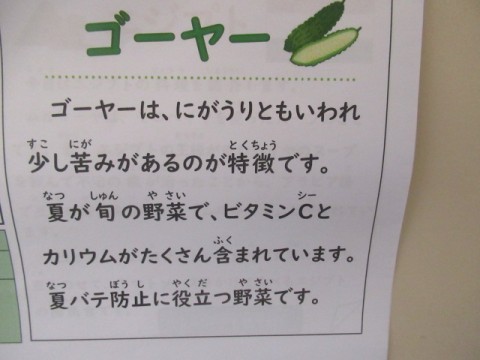 ゴーヤー
ゴーヤーは、にがうりともいわれ
すこ にが とくちょう
少し苦みがあるのが特徴です。
なつ しゅん や さい シー
夏が旬の野菜で、ビタミンCと
ふく
カリウムがたくさん含まれています。
なつ ぼう し やく だ や さい
夏バテ防止に役立つ野菜です。